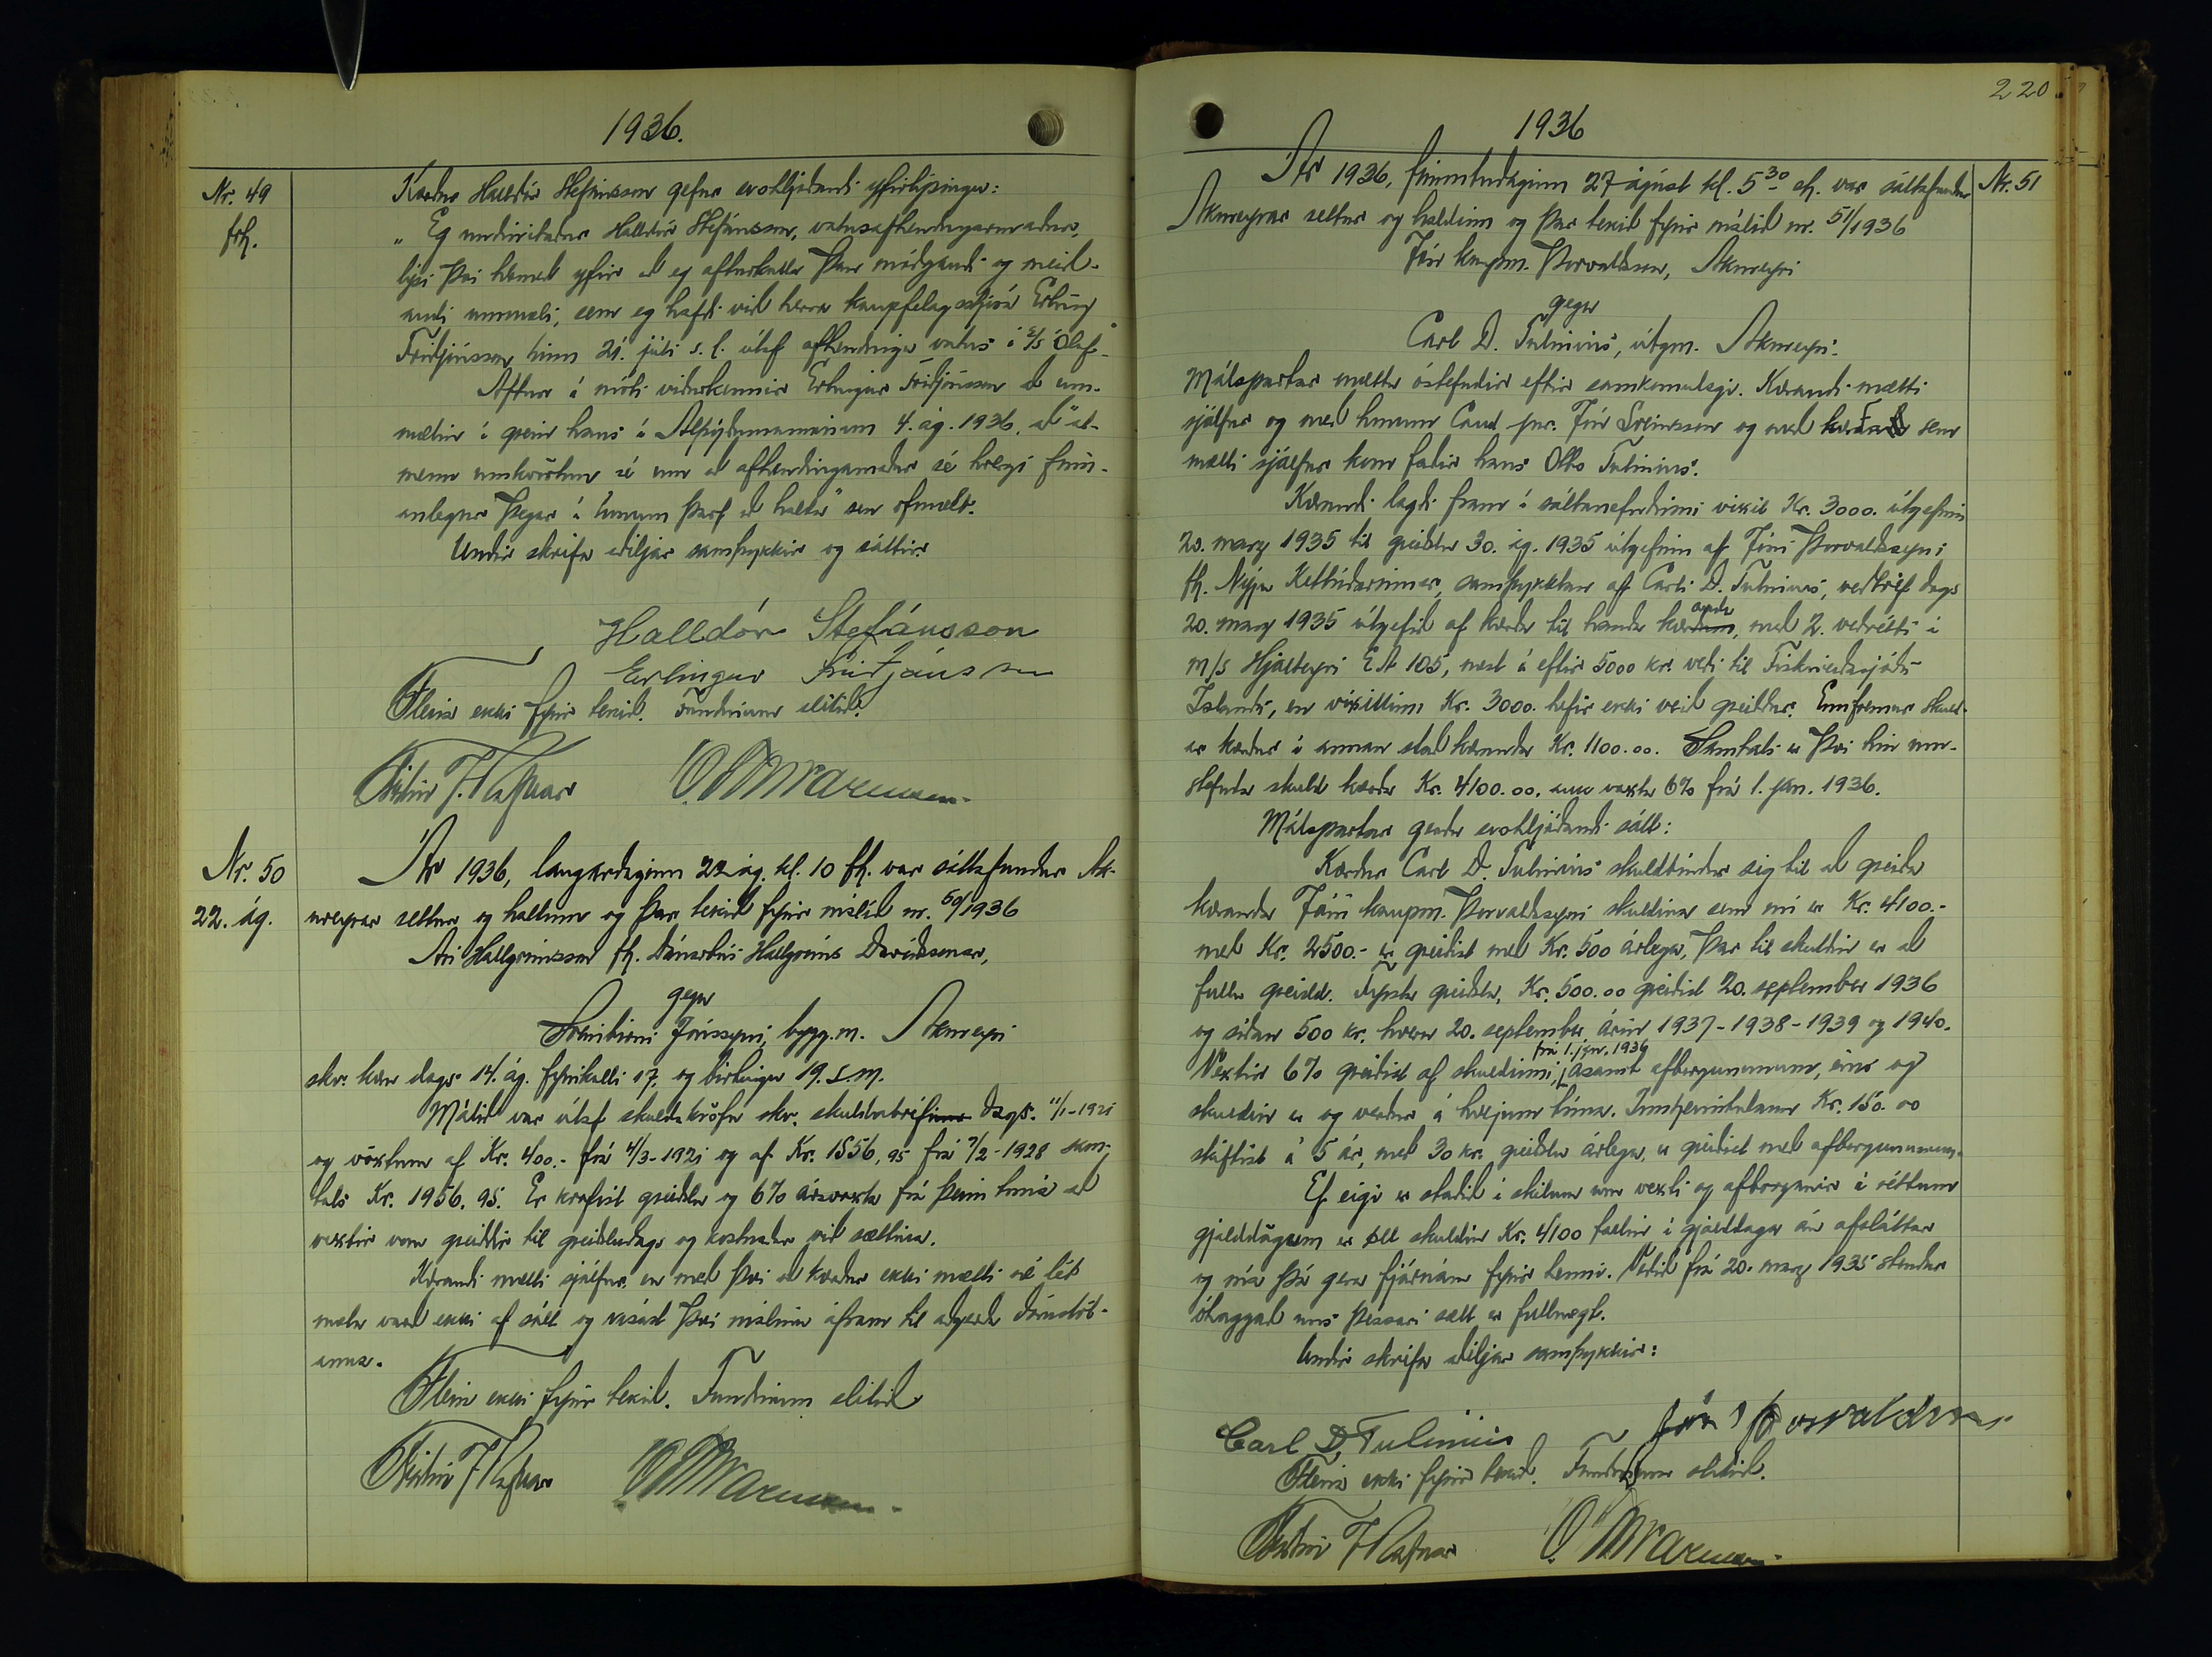 1936.
Nr. 49
frh.
Kærður Halldór Stefánsson gefur svohljóðandi yfirlýsingu:
„Eg undirritaður Halldór Stefánsson, vatnsafhendingarmaður,
lýsi því hérmeð yfir að eg afturkalla þau móðgandi og meið-
andi ummæli, sem eg hafði við herra kaupfélagsstjóra Erling
Friðjónsson hinn 21. júlí s.l. útaf afhendingu vatns í e/s Ólaf."
Aftur á móti viðurkennir Erlingur Friðjónsson að um-
mælin í grein hans í Alþýðumanninum 4. ág. 1936, að "al-
menn umkvörtun sé um að afhendingamaður sé hvergi finn-
anlegur þegar á honum þarf að halda" séu ofmælt.
Undir skrifa aðiljar samþykkir og sáttir:
Halldór Stefánsson
Erlingur Friðjónsson
Fleira ekki fyrir tekið. Fundinum slitið.
Kristinn J. Hafnar
Nr. 50
22. ág.
Ár 1936, laugardaginn 22. ág. kl. 10 fh. var sáttafundur Ak-
ureyrar settur og haldinn og þar tekið fyrir málið nr. 50/1936
Ari Hallgrímsson fh. dánarbús Hallgríms Davíðssonar,
gegn
Sveinbirni Jónssyni, bygg.m. Akureyri
skv. kæru dags. 14. ág. fyrirkalli 17. og birtingu 19. s.m.
Málið var útaf skuldakröfu skv. skuldabréfinu dags. 11/1-1921
og vöxtum af Kr. 400.- frá 4/3-1921 og af Kr. 1556,95 frá 7/2-1928 sam-
tals Kr. 1956.95. Er krafist greiðslu og 6% ársvaxta frá þeim tíma að
vextir voru greiddir til greiðsludags og kostnaðar við sættina.
Kærandi mætti sjálfur en með því að kærður ekki mætti né lét
mæta varð ekki af sátt og vísast því málinu áfram til aðgerða dómstól-
anna.
Fleira ekki fyrir tekið. Fundinum slitið
Kristinn J. Hafnar
220
1936
Nr. 51
Ár 1936, fimmtudaginn 27 ágúst kl. 5 30 eh. var sáttafundur
Akureyrar settur og haldinn og þar tekið fyrir málið nr. 51/1936
Jón kaupm. Þorvaldsson, Akureyri
gegn
Carl D. Tulinius, útgm. Akureyri.
Málspartar mættu óstefndir eftir samkomulagi. Kærandi mætti
sjálfur og með honum Cand. jur. Jón Sveinsson og með kærða sem
mætti sjálfur kom faðir hans Otto Tulinius.
Kærandi lagði fram á sáttanefndinni víxil Kr. 3000. útgefinn
20. marz 1935 til greiðslu 30. ág. 1935 útgefinn af Jóni Þorvaldssyni
fh. Nýju Kjötbúðarinnar, samþykktur af Carli D. Tulinius, veðbréf dags
20. marz 1935 útgefið af kærða til handa kæranda, með 2. veðrétti í
m/s Hjalteyri EA 105, næst á eftir 5000 kr. veði til Fiskveiðasjóðs
Íslands, en víxillinn Kr. 3000. hefir ekki verið greiddur. Ennfremur skuld-
ar kærður á annan stað kæranda Kr. 1100.00. Samtals er því hin um-
stefnda skuld kærða Kr. 4100.00. auk vaxta 6% frá 1. jan. 1936.
Málspartar gerðu svohljóðandi sátt:
Kærður Carl D. Tulinius skuldbindur sig til að greiða
kæranda Jóni kaupm. Þorvaldssyni skuldina sem nú er Kr. 4100.-
með Kr. 2500.- er greiðist með Kr. 500 árlega, þar til skuldin er að
fullu greidd. Fyrsta greiðsla, Kr. 500.00 greiðist 20. september 1936
og síðan 500 kr. hvern 20. september árin 1937-1938-1939 og 1940.
Vextir 6% greiðist af skuldinni, frá 1. jan. 1936 ásamt afborgununum, eins og
skuldin er og verður á hverjum tíma. Innheimtulaun Kr. 150.00
skiftist á 5 ár, með 30 kr. greiðslu árlega, er greiðist með afborgununum.
Ef eigi er staðið í skilum með vexti og afborganir á réttum
gjalddögum er öll skuldin Kr. 4100 fallin í gjalddaga án afsláttar
og má þá gera fjárnám fyrir henni. Veðið frá 20. marz 1935 stendur
óhaggað uns þessari sátt er fullnægt.
Undir skrifa aðiljar samþykkir:
Carl D. Tulinius
Jón Þorvaldsson
Fleira ekki fyrir tekið. Fundinum slitið.
Kristinn J. Hafnar